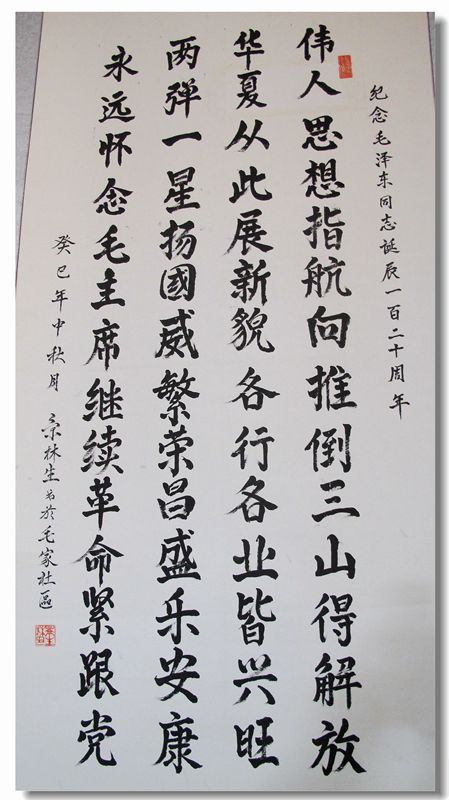 纪念毛泽东同志诞辰一百二十周年
伟人思想指航向推倒三山得解放
华夏从此展新貌各行各业皆兴旺
两弹一星扬國威繁荣昌盛乐安康
永远怀念毛主席继续革命紧跟党
癸巳年中秋月
林生书於毛家社區